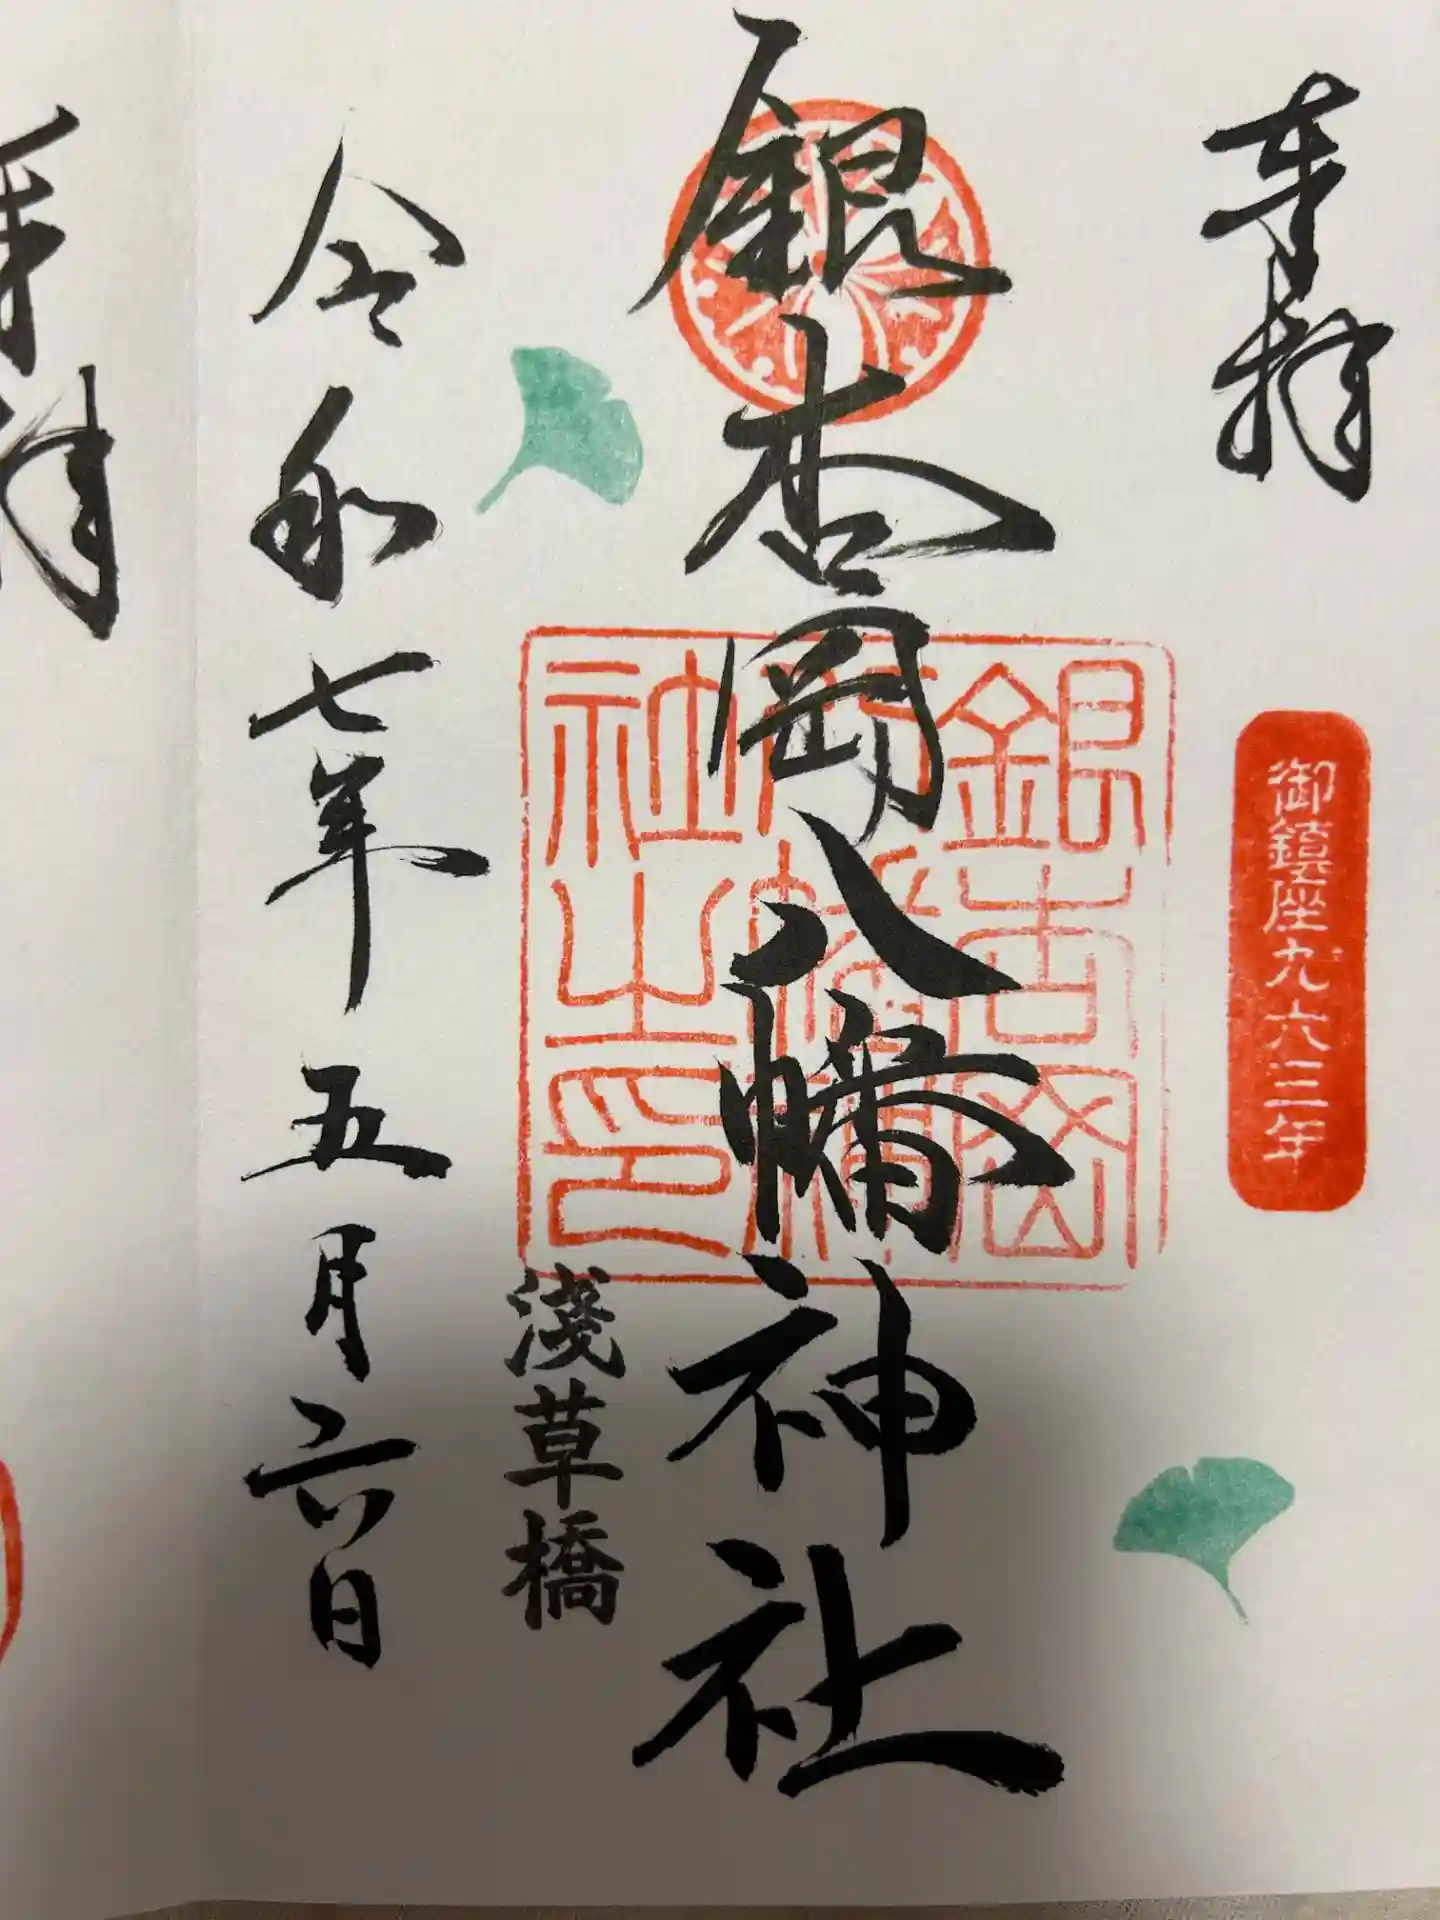 奉拝
御鎮座九六三年
銀杏岡八幡神社
銀杏岡八幡神社之印
淺草橋
令和七年五月六日
拝